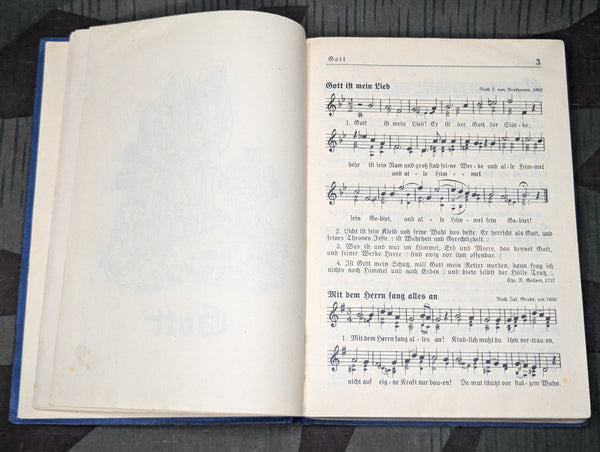 Gott 3
Gott ist mein Lied Nach L. van Beethoven, 1803
1. Gott ist mein Lied! Er ist der Gott der Stär-ke;
hehr ist sein Nam und groß sind sei-ne Wer-ke und al-le Him-mel
und al - le Him - - mel
sein Ge-biet, und al - le Him-mel sein Ge-biet!
2. Licht ist sein Kleid und seine Wahl das beste. Er herrscht als Gott, und
seines Thrones Feste :: ist Wahrheit und Gerechtigkeit. ::
3. Was ist und war im Himmel, Erd und Meere, das kennet Gott,
und seiner Werke Heere :: sind ewig vor ihm offenbar. ::
4. Ist Gott mein Schutz, will Gott mein Retter werden, dann frag ich
nichts nach Himmel und nach Erden :: und biete selbst der Hölle Trutz. ::
Chr. F. Gellert, 1757
Mit dem Herrn fang alles an Nach Jul. Grobe, um 1850
1. Mit dem Herrn fang al-les an! Kind-lich mußt du ihm ver-trau-en,
nicht auf eig-ne Kraft nur bau-en! De-mut schützt vor stol-zem Wahn.